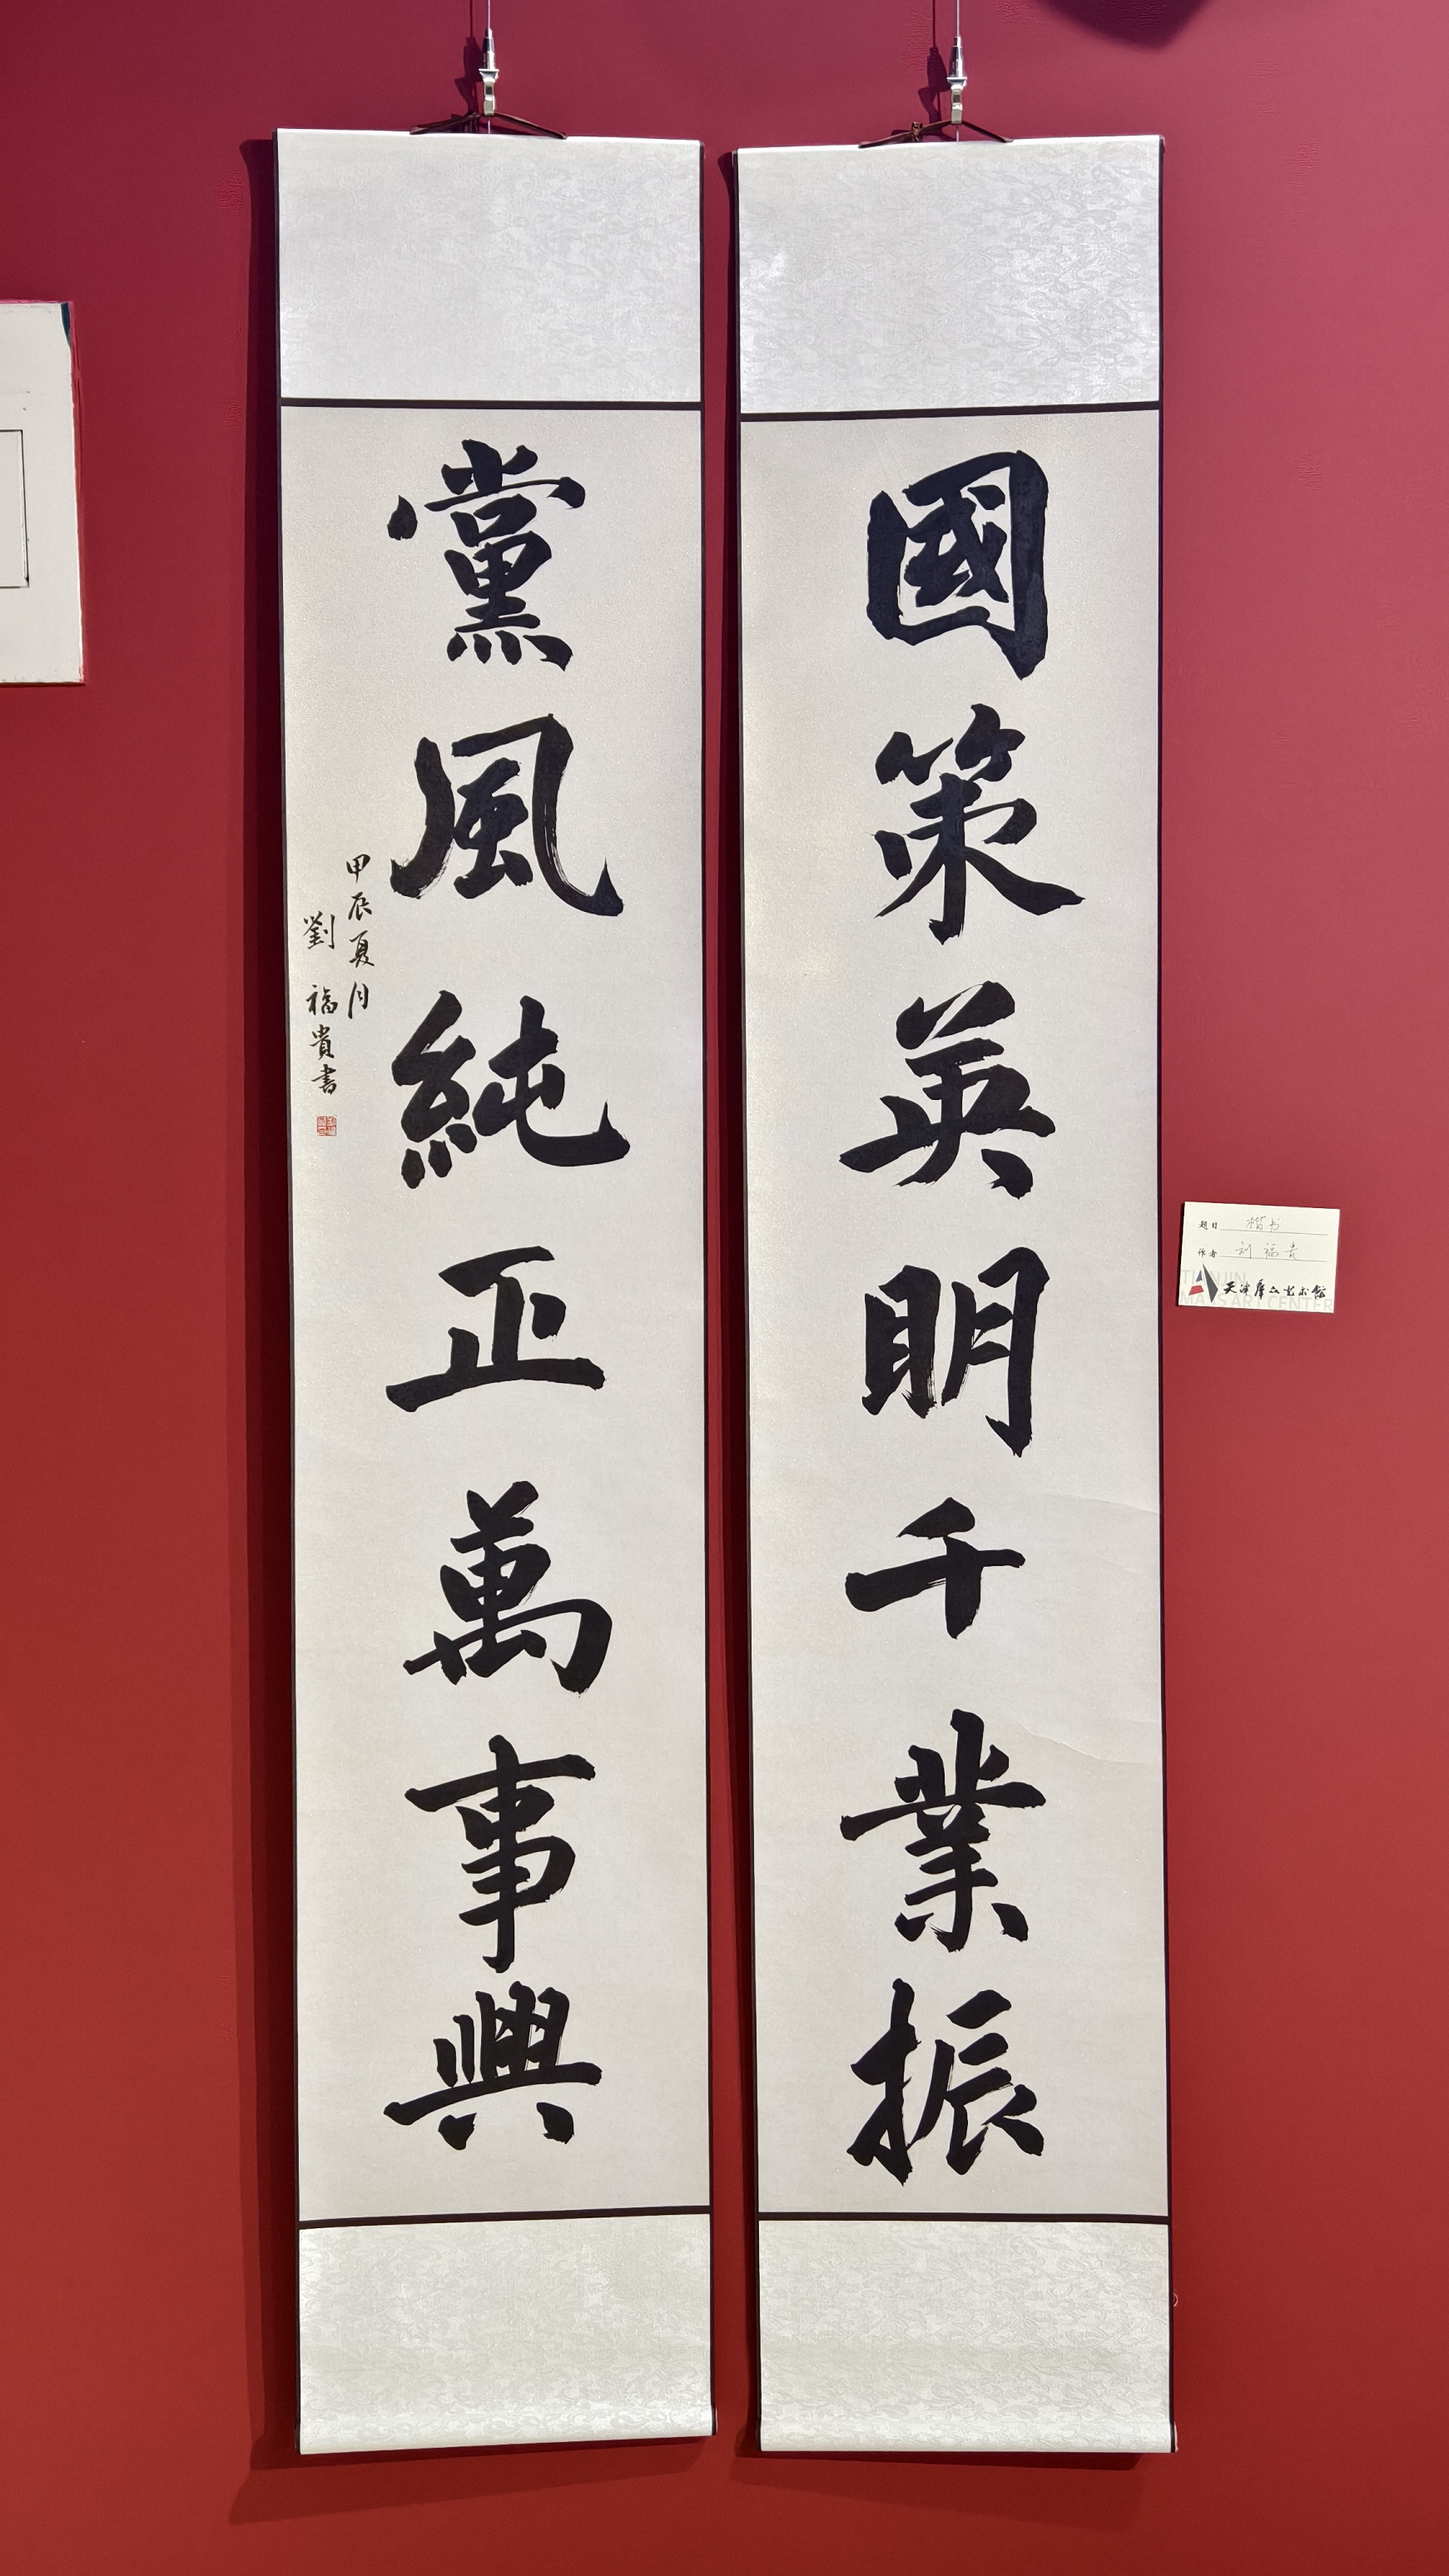 國策英明千業振
黨風純正萬事興
甲辰夏月
劉福貴書
题目 楷书
作者 刘福贵
天津群众艺术馆
TIANJIN
MASS ART CENTER